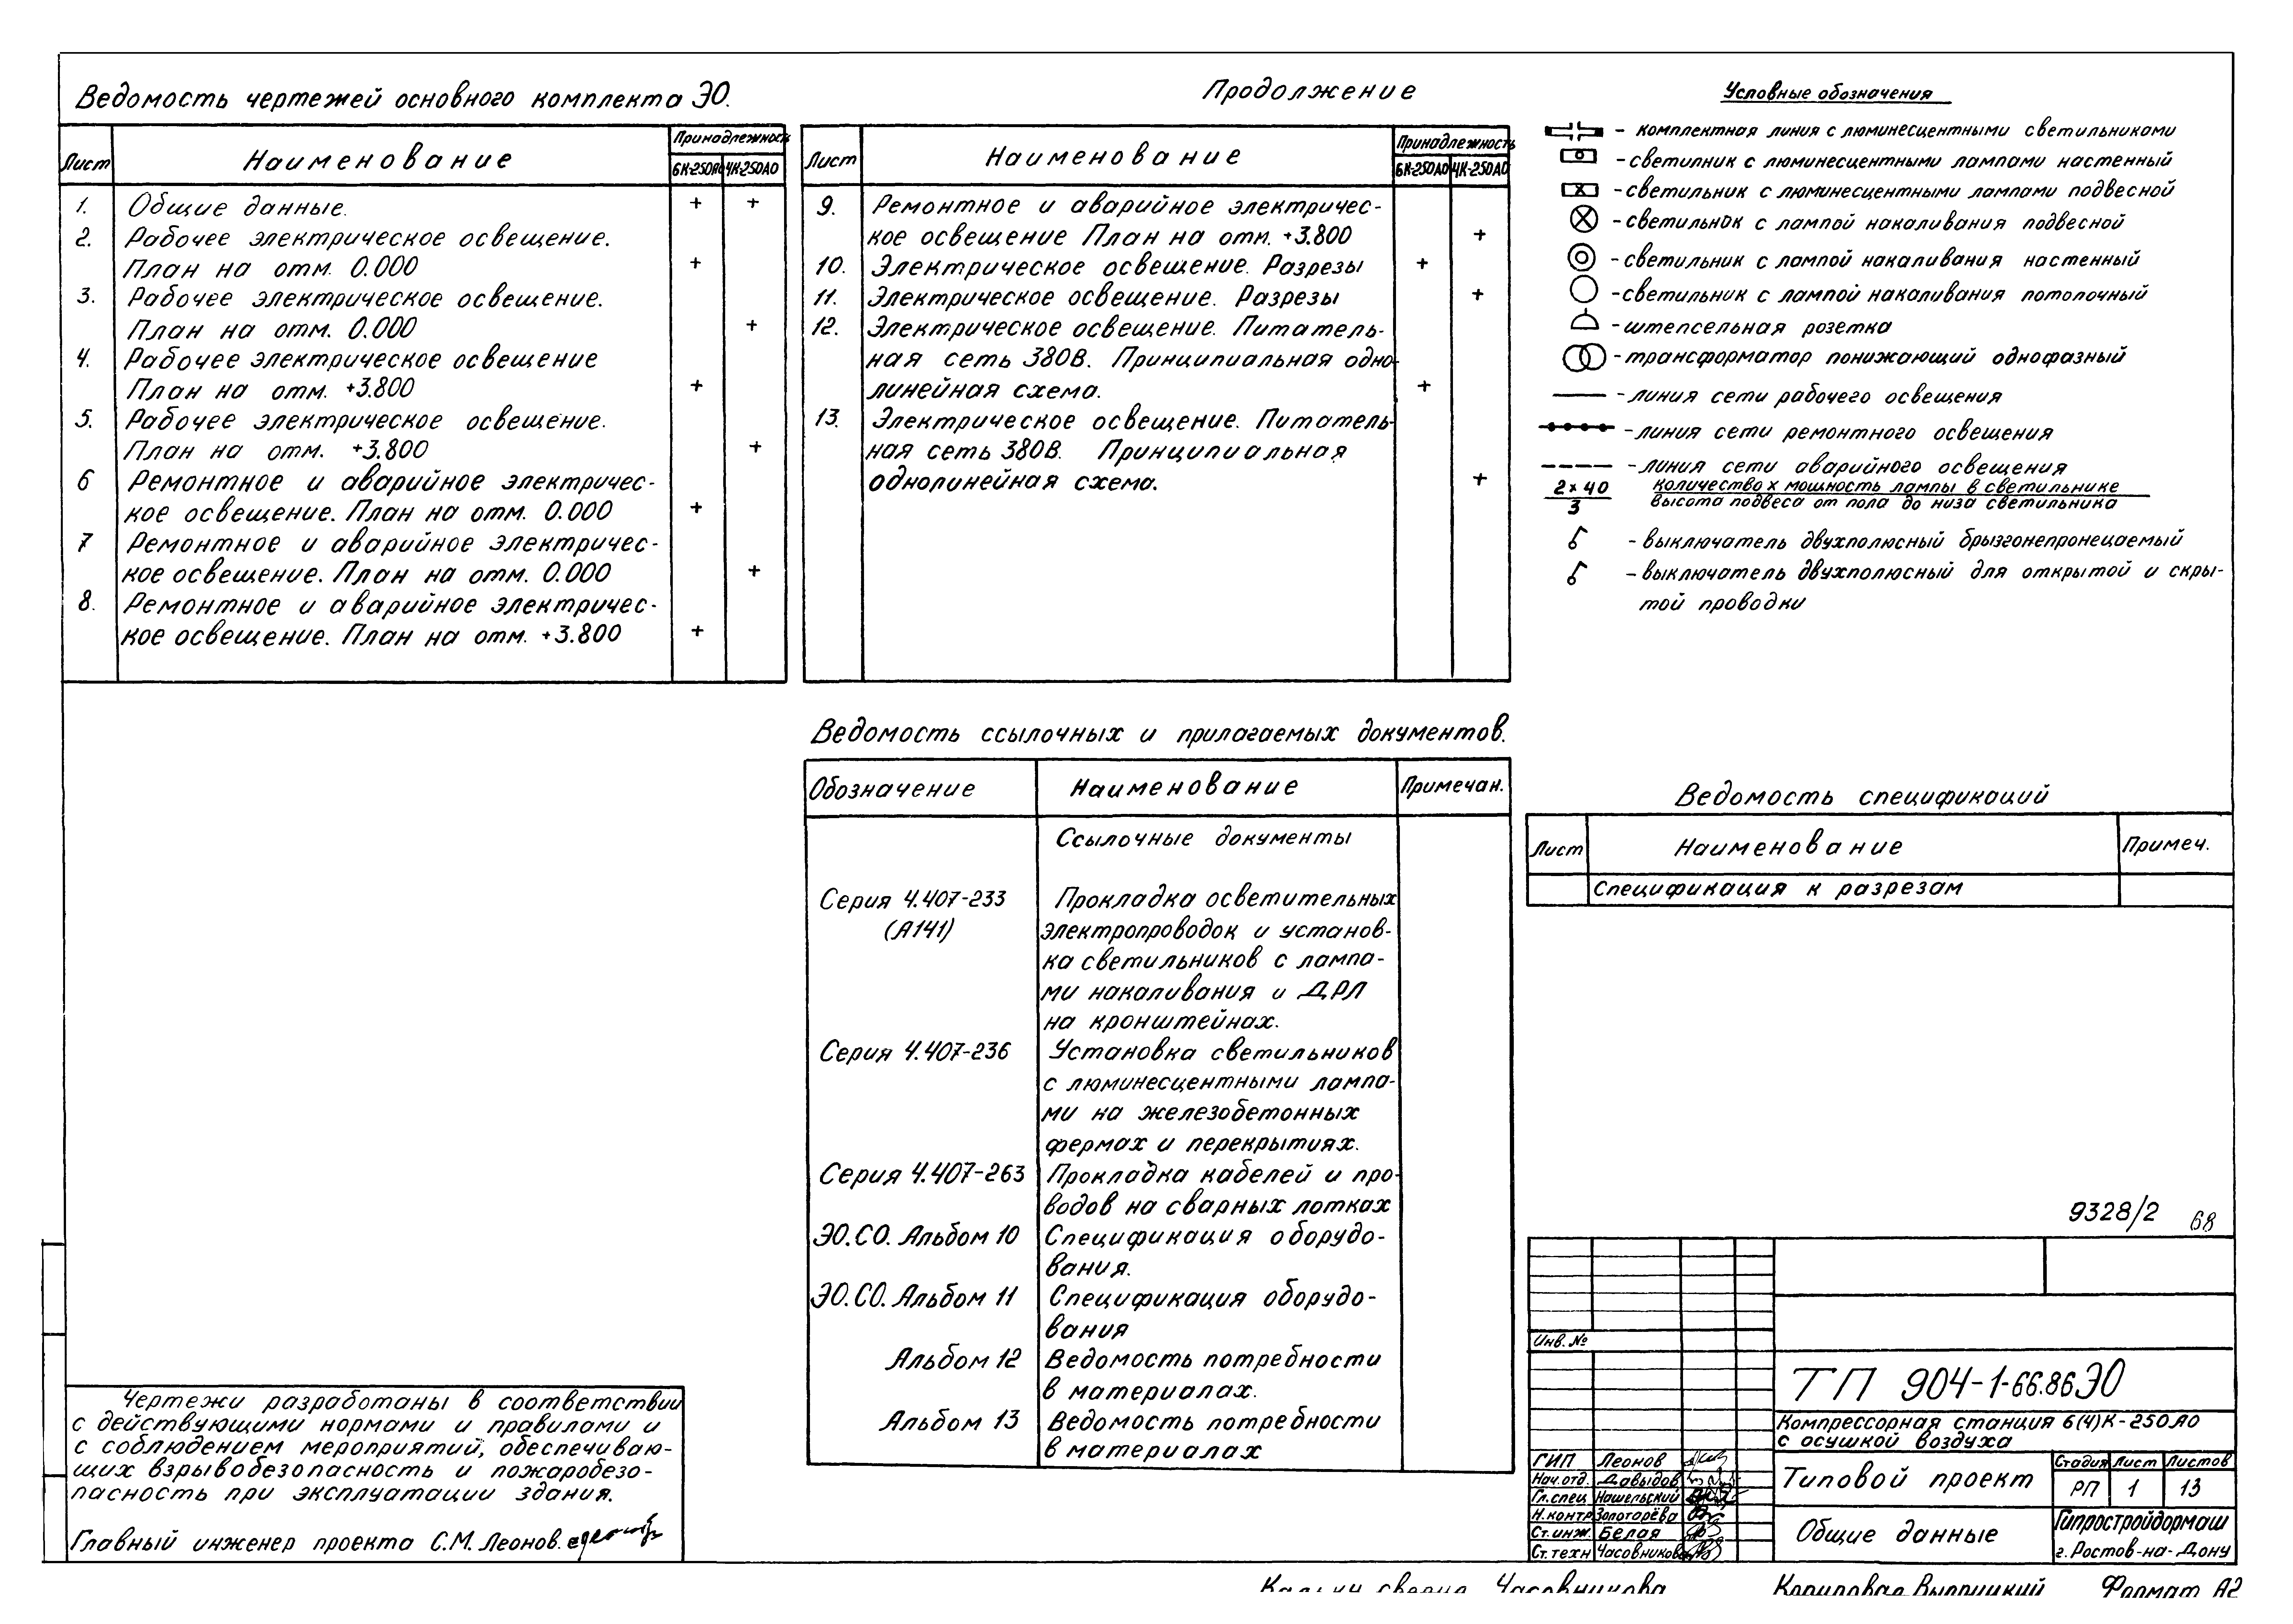 Ведомость чертежей основного комплекта ЭО.
Лист
Наименование
Принадлежность
6К-250АО 4К-250АО
1. Общие данные. + +
2. Рабочее электрическое освещение.
План на отм. 0.000 +
3. Рабочее электрическое освещение.
План на отм. 0.000 +
4. Рабочее электрическое освещение
План на отм. +3.800 +
5. Рабочее электрическое освещение.
План на отм. +3.800 +
6 Ремонтное и аварийное электричес-
кое освещение. План на отм. 0.000 +
7 Ремонтное и аварийное электричес-
кое освещение. План на отм. 0.000 +
8. Ремонтное и аварийное электричес-
кое освещение. План на отм. +3.800 +
Продолжение
Лист
Наименование
Принадлежность
6К-250АО 4К-250АО
9. Ремонтное и аварийное электричес-
кое освещение План на отм. +3.800 +
10. Электрическое освещение. Разрезы +
11. Электрическое освещение. Разрезы +
12. Электрическое освещение. Питатель-
ная сеть 380В. Принципиальная одно-
линейная схема. +
13. Электрическое освещение. Питатель-
ная сеть 380В. Принципиальная
однолинейная схема. +
Условные обозначения
- комплектная линия с люминесцентными светильниками
- светилник с люминесцентными лампами настенный
- светильник с люминесцентными лампами подвесной
- светильнок с лампой накаливания подвесной
- светильник с лампой накаливания настенный
- светильник с лампой накаливания потолочный
- штепсельная розетка
- трансформатор понижающий однофазный
- линия сети рабочего освещения
- линия сети ремонтного освещения
- линия сети аварийного освещения
2×40 количество х мощность лампы в светильнике
3 высота подвеса от пола до низа светильника
- выключатель двухполюсный брызгонепронецаемый
- выключатель двухполюсный для открытой и скры-
той проводки
Ведомость ссылочных и прилагаемых документов.
Обозначение Наименование Примечан.
Ссылочные документы
Серия 4.407-233 Прокладка осветительных
(А141) электропроводок и установ-
ка светильников с лампа-
ми накаливания и ДРЛ
на кронштейнах.
Серия 4.407-236 Установка светильников
с люминесцентными лампа-
ми на железобетонных
фермах и перекрытиях.
Серия 4.407-263 Прокладка кабелей и про-
водов на сварных лотках
ЭО.СО. Альбом 10 Спецификация оборудо-
вания.
ЭО.СО. Альбом 11 Спецификация оборудо-
вания
Альбом 12 Ведомость потребности
в материалах.
Альбом 13 Ведомость потребности
в материалах
Ведомость спецификаций
Лист Наименование Примеч.
Спецификация к разрезам
Чертежи разработаны в соответствии
с действующими нормами и правилами и
с соблюдением мероприятий, обеспечиваю-
щих взрывобезопасность и пожаробезо-
пасность при эксплуатации здания.
Главный инженер проекта С.М. Леонов.
9328/2 68
Инв. №
ТП 904-1-66.86 ЭО
Компрессорная станция 6(4)К-250АО
с осушкой воздуха
ГИП Леонов
Нач.отд. Давыдов
Гл.спец Нашельский
Н.контр Золотарёва
Ст.инж. Белая
Ст.техн Часовникова
Типовой проект
Стадия Лист Листов
РП 1 13
Общие данные
Гипростройдормаш
г. Ростов-на-Дону
Кальку сверил Часовникова Копировал Формат А2